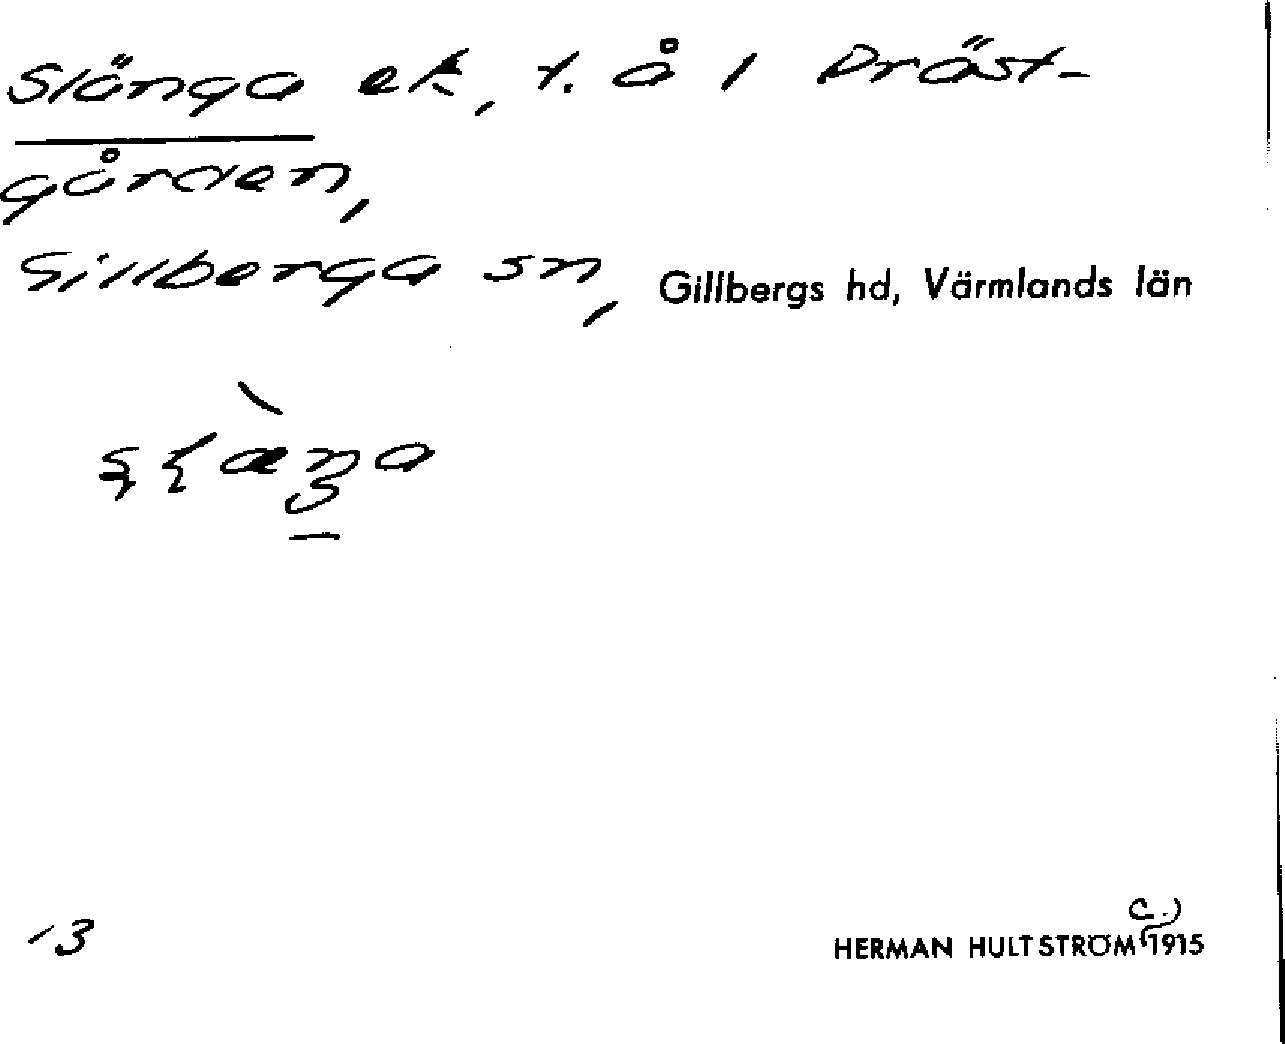 Slänga ek, t. å i Präst-
gården,
Gillberga sn, Gillbergs hd, Värmlands län
13
c.)
HERMAN HULTSTRÖM (1915